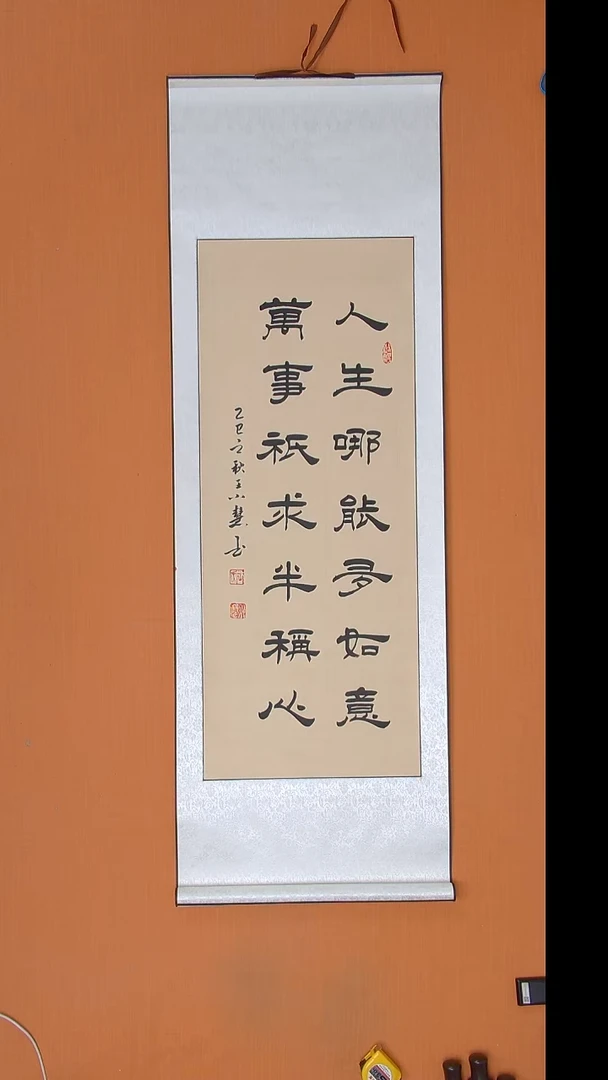 人生哪能多如意
萬事祇求半稱心
乙巳之秋王小慧書